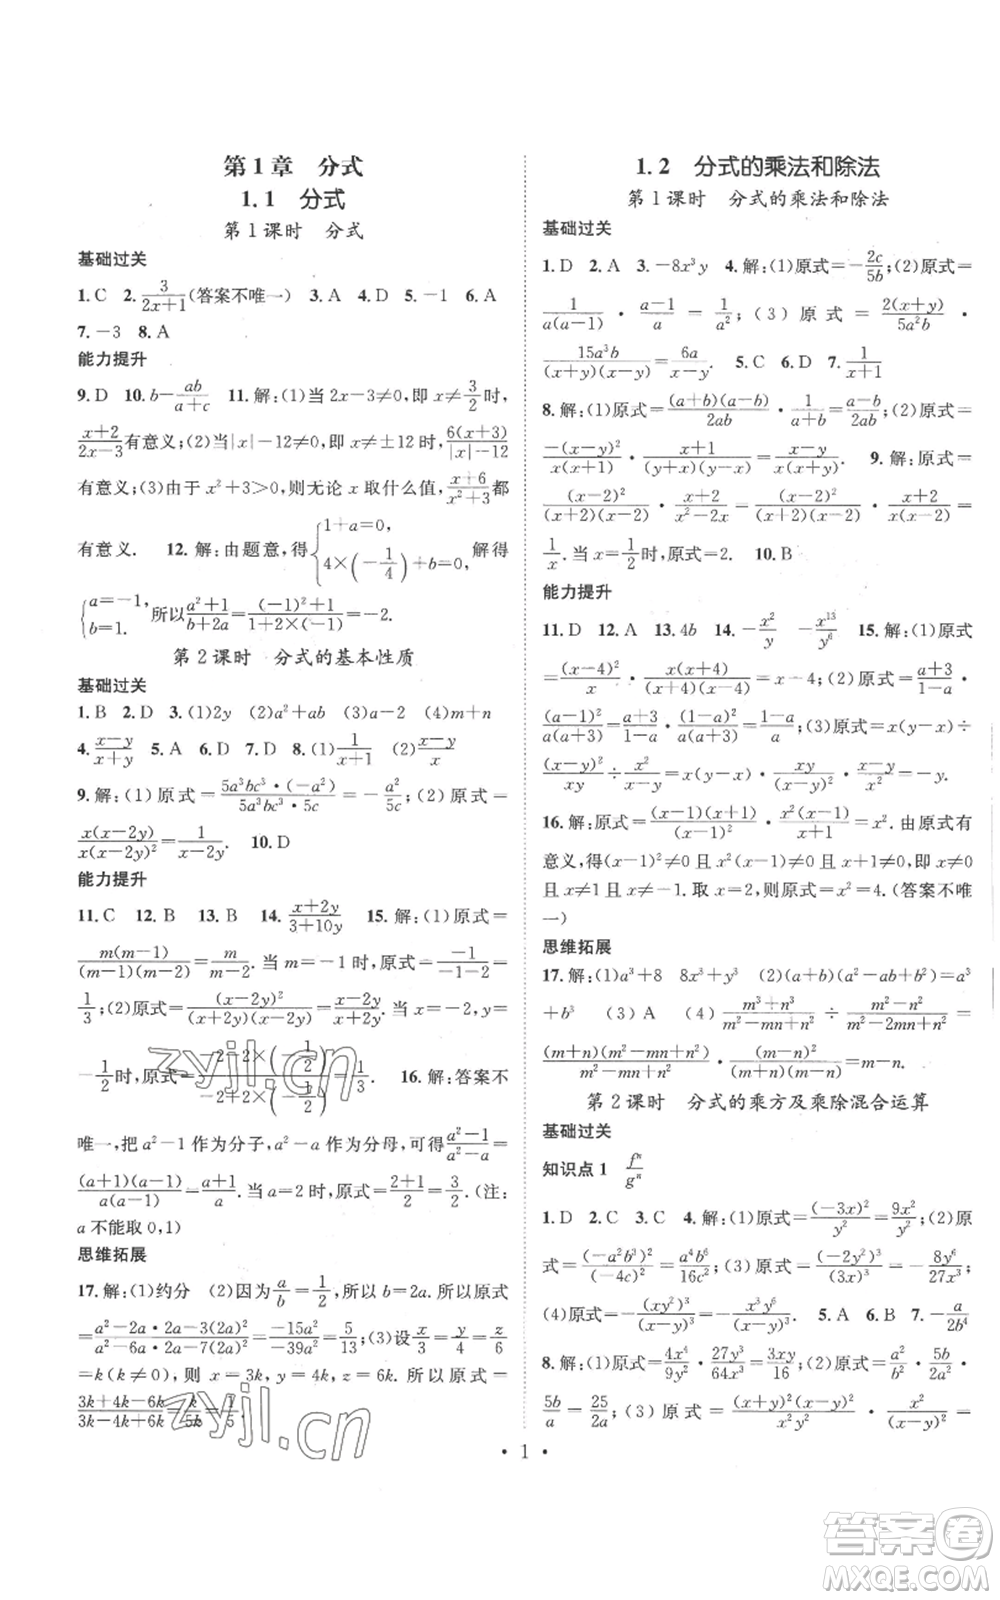 第1章 分式
1.1 分式
第1课时 分式
基础过关
1. C 2. \frac{3}{2x+1}(答案不唯一) 3. A 4. D 5. -1 6. A
7. -3 8. A
能力提升
9. D 10. b-\frac{ab}{a+c} 11. 解:(1)当 2x-3≠0,即 x≠\frac{3}{2}时,
\frac{x+2}{2x-3}有意义;(2)当|x|-12≠0,即 x≠±12时,\frac{6(x+3)}{|x|-12}
有意义;(3)由于 x²+3>0,则无论 x 取什么值,\frac{x+6}{x²+3}都
有意义. 12. 解:由题意,得{1+a=0, 4×(-\frac{1}{4})+b=0, 解得
{a=-1, b=1. 所以\frac{a²+1}{b+2a}=\frac{(-1)²+1}{1+2×(-1)}=-2.
第2课时 分式的基本性质
基础过关
1. B 2. D 3. (1)2y (2)a²+ab (3)a-2 (4)m+n
4. \frac{x-y}{x+y} 5. A 6. D 7. D 8. (1)\frac{1}{x+1} (2)\frac{x-y}{x}
9. 解:(1)原式=\frac{5a³bc³·(-a²)}{5a³bc³·5c}=-\frac{a²}{5c};(2)原式=
\frac{x(x-2y)}{x(x-2y)²}=\frac{1}{x-2y}. 10. D
能力提升
11. C 12. B 13. B 14. \frac{x+2y}{3+10y} 15. 解:(1)原式=
\frac{m(m-1)}{(m-1)(m-2)}=\frac{m}{m-2}. 当 m=-1时,原式=\frac{-1}{-1-2}=
\frac{1}{3};(2)原式=\frac{(x-2y)²}{(x+2y)(x-2y)}=\frac{x-2y}{x+2y}. 当 x=-2,y=
-\frac{1}{2}时,原式=\frac{-2-2×(-\frac{1}{2})}{-2+2×(-\frac{1}{2})}=\frac{1}{3}. 16. 解:答案不
唯一,把 a²-1 作为分子,a²-a 作为分母,可得\frac{a²-1}{a²-a}=
\frac{(a+1)(a-1)}{a(a-1)}=\frac{a+1}{a}. 当 a=2时,原式=\frac{2+1}{2}=\frac{3}{2}.(注:
a 不能取 0,1)
思维拓展
17. 解:(1)约分 (2)因为\frac{a}{b}=\frac{1}{2},所以 b=2a. 所以原式
=\frac{a²-2a·2a-3(2a)²}{a²-6a·2a-7(2a)²}=\frac{-15a²}{-39a²}=\frac{5}{13};(3)设\frac{x}{3}=\frac{y}{4}=\frac{z}{6}
=k(k≠0),则 x=3k,y=4k,z=6k. 所以原式=
\frac{3k+4k-6k}{3k-4k+6k}=\frac{k}{5k}=\frac{1}{5}.
1.2 分式的乘法和除法
第1课时 分式的乘法和除法
基础过关
1. D 2. A 3. -8x³y 4. 解:(1)原式=-\frac{2c}{5b};(2)原式=
\frac{1}{a(a-1)}·\frac{a-1}{a}=\frac{1}{a²};(3)原式=\frac{2(x+y)}{5a²b}·
\frac{15a³b}{(x+y)(x-y)}=\frac{6a}{x-y}. 5. C 6. D 7. \frac{1}{x+1}
8. 解:(1)原式=\frac{(a+b)(a-b)}{2ab}·\frac{1}{a+b}=\frac{a-b}{2ab};(2)原式=
\frac{-(x-y)²}{x(x+1)}·\frac{x+1}{(y+x)(y-x)}=\frac{x-y}{x(x+y)}. 9. 解:原式=
\frac{(x-2)²}{(x+2)(x-2)}·\frac{x+2}{x²-2x}=\frac{(x-2)²}{(x+2)(x-2)}·\frac{x+2}{x(x-2)}=
\frac{1}{x}. 当 x=\frac{1}{2}时,原式=2. 10. B
能力提升
11. D 12. A 13. 4b 14. -\frac{x²}{y} \frac{x^{13}}{y^{6}} 15. 解:(1)原式
=\frac{(x-4)²}{x}·\frac{x(x+4)}{(x+4)(x-4)}=x-4;(2)原式=\frac{a+3}{1-a}·
\frac{(a-1)²}{(a-1)²}=\frac{a+3}{1-a}=\frac{(a-1)²}{(a-1)²}=\frac{a+3}{1-a};(3)原式=x(x-y)÷
\frac{(x-y)²}{xy}÷\frac{x²}{y-x}=x(x-y)·\frac{xy}{(x-y)²}·\frac{x-y}{-x²}=-y.
16. 解:原式=\frac{(x-1)(x+1)}{(x-1)²}·\frac{x²(x-1)}{x+1}=x². 由原式有
意义,得(x-1)²≠0 且 x²(x-1)≠0 且 x+1≠0. 即 x≠0
且 x≠1 且 x≠-1. 取 x=2,则原式=x²=4.(答案不唯
一)
思维拓展
17. 解:(1)a³+8 8x³+y³ (2)(a+b)(a²-ab+b²)=a³
+b³ (3)A (4)\frac{m³+n³}{m²-mn+n²}÷\frac{m²-n²}{m²-2mn+n²}=
\frac{(m+n)(m²-mn+n²)}{m²-mn+n²}·\frac{(m-n)²}{(m+n)(m-n)}=m-n.
第2课时 分式的乘方及乘除混合运算
基础过关
知识点1 \frac{fⁿ}{gⁿ}
1. D 2. C 3. C 4. 解:(1)原式=\frac{(-3x)²}{y²}=\frac{9x²}{y²};(2)原
式=\frac{(-a²b³)²}{(-4c)²}=\frac{a⁴b⁶}{16c²};(3)原式=\frac{(-2y²)³}{(3x)³}=-\frac{8y⁶}{27x³};
(4)原式=\frac{(xy²)³}{(x-y)³}=\frac{x³y⁶}{(x-y)³}. 5. A 6. A 7. -\frac{a}{2b⁴}
8. 解:(1)原式=\frac{4x⁴}{9y²}·\frac{27y³}{64x³}=\frac{3xy}{16};(2)原式=\frac{a²}{b²}·\frac{5b}{2a}·
\frac{5b}{a}=\frac{25}{2a};(3)原式=\frac{(x+y)²(x-y)²}{x²y²}·\frac{x²}{(x-y)²}·
· 1 ·
zyjl.cn
zyjl.cn
答案卷
MXQE.COM